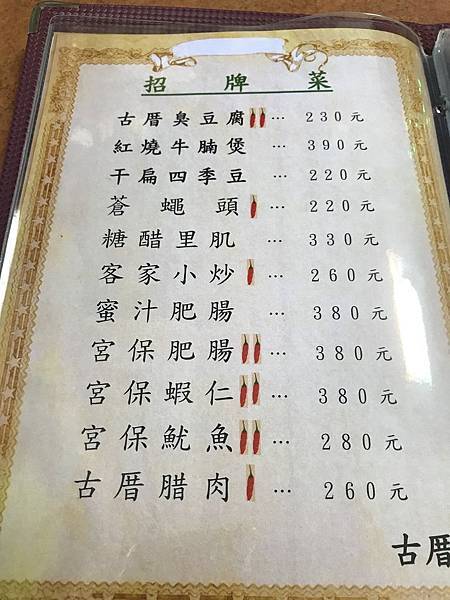 招牌菜
古厝臭豆腐 … 230元
紅燒牛腩煲 … 390元
干扁四季豆 … 220元
蒼蠅頭 … 220元
糖醋里肌 … 330元
客家小炒 … 260元
蜜汁肥腸 … 380元
宮保肥腸 … 380元
宮保蝦仁 … 380元
宮保魷魚 … 280元
古厝腊肉 … 260元
古厝